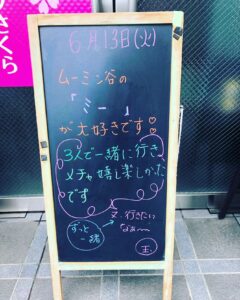 さくら
6月13日(火)
ムーミン谷の
「ミー」
が大好きです♡
3人で一緒に行き
メチャ嬉し楽しかた
です
又、行きたい
なぁ〜
ずっと
一緒
玉